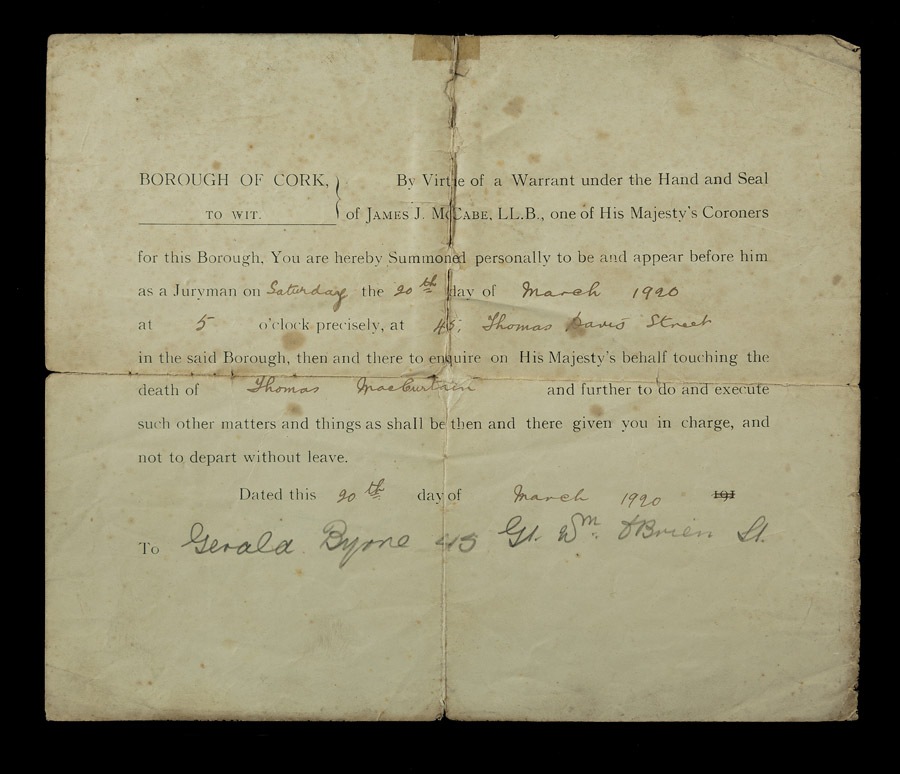 BOROUGH OF CORK, By Virtue of a Warrant under the Hand and Seal
TO WIT. of JAMES J. McCABE, LL.B., one of His Majesty's Coroners
for this Borough, You are hereby Summoned personally to be and appear before him
as a Juryman on Saturday the 20th day of March 1920
at 5 o'clock precisely, at 45, Thomas Davis Street
in the said Borough, then and there to enquire on His Majesty's behalf touching the
death of Thomas MacCurtain and further to do and execute
such other matters and things as shall be then and there given you in charge, and
not to depart without leave.
Dated this 20th day of March 1920 191
To Gerald Byrne 45 Gt. Wm. O'Brien St.